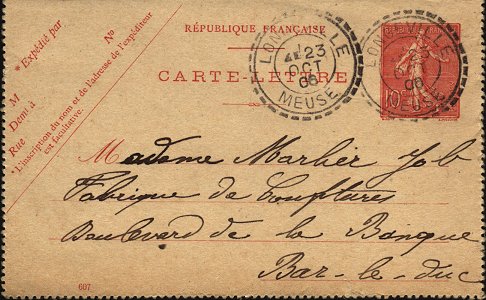 RÉPUBLIQUE FRANÇAISE
CARTE-LETTRE
* Expédié par
M
Demt à
Rue
No
* L'inscription du nom et de l'adresse de l'expéditeur
est facultative.
LONGEVILLE
23
OCT
MEUSE
LONGEVILLE
MEUSE
10
Madame Marlier Job
Fabrique de Confitures
Boulevard de la Banque
Bar-le-duc
607